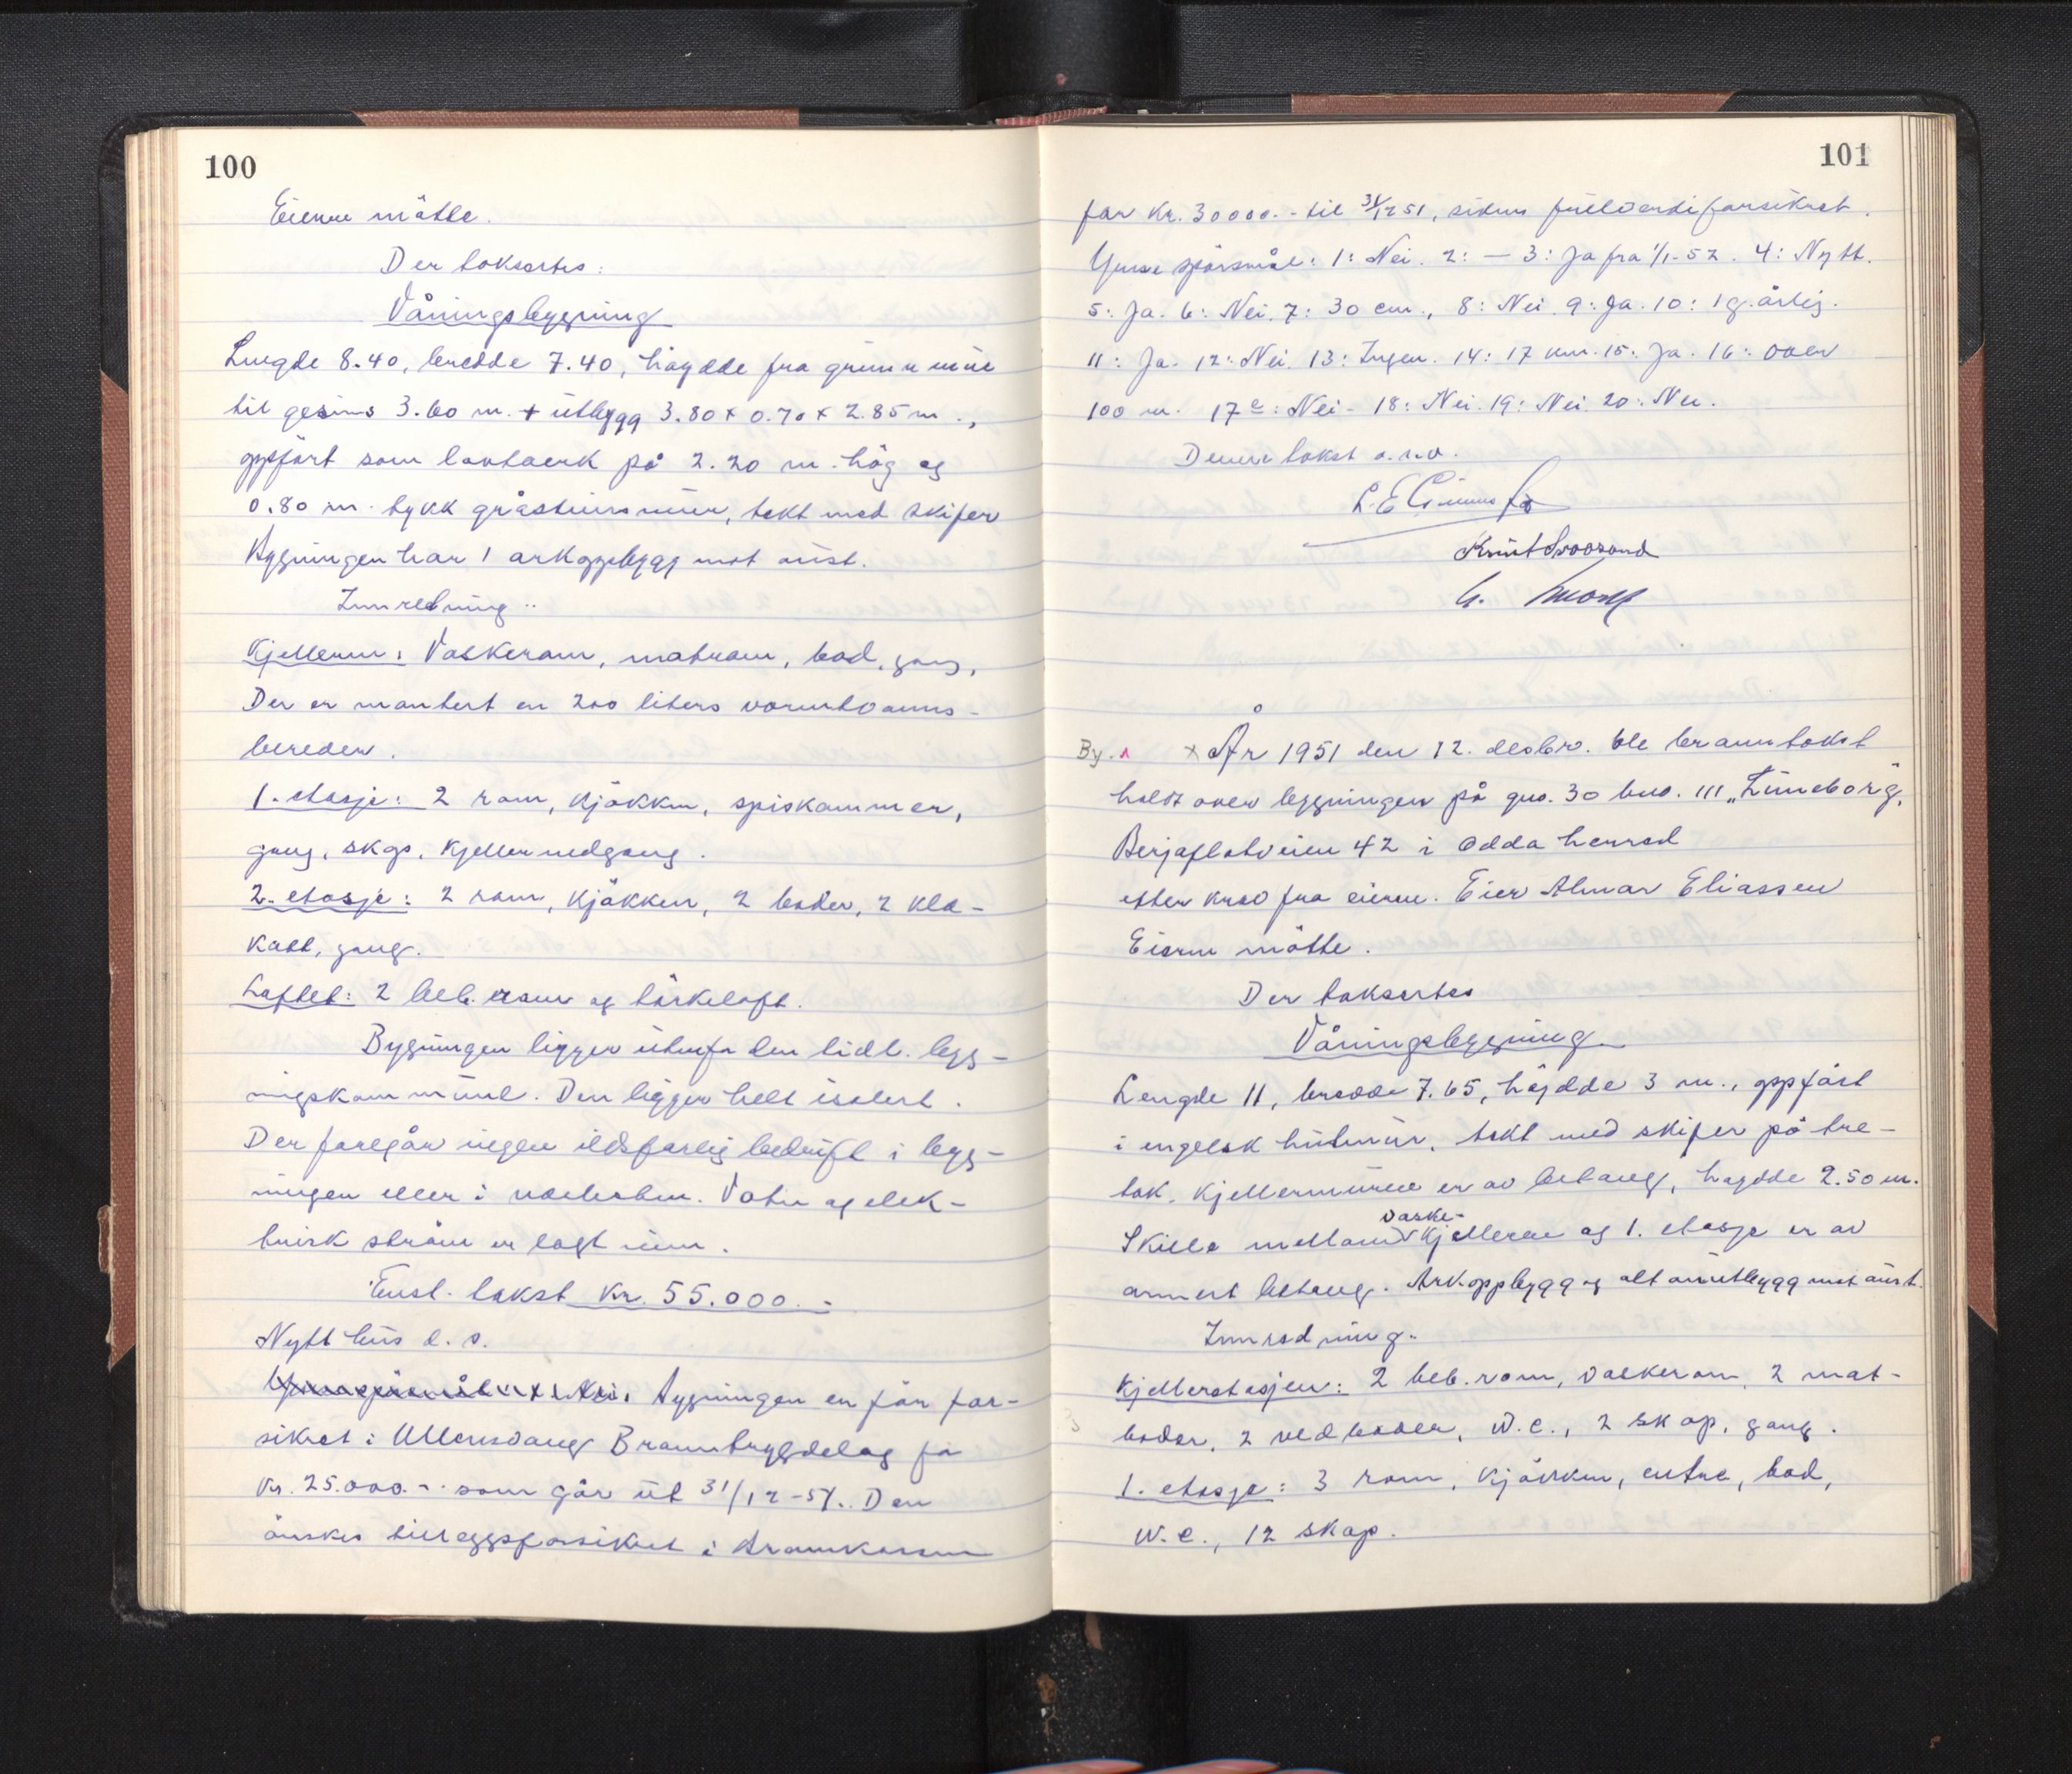 100
Eieren mötte.
Der taksertes:
Våningsbygning
Lengde 8.40, bredde 7.40, höydde fra grunnmur
til gesims 3.60 m. + utbygg 3.80 x 0.70 x 2.85 m.,
oppfört som lavtverk på 2.20 m. hög og
0.80 m. tykk gråsteinsmur, tekt med skifer
Bygningen har 1 arkoppbygg mot aust.
Innredning..
Kjelleren: Vaskerom, matrom, bad, gang,
Der er montert en 200 liters varmtvanns-
bereder.
1. etasje: 2 rom, kjökken, spiskammer,
gang, skap, kjellernedgang.
2. etasje: 2 rom, kjökken, 2 boder, 2 kla-
kott, gang.
Loftet: 2 beb. rom og törkeloft.
Bygningen ligger utenfor den tidl. bygg-
ningskommune. Den ligger helt isolert.
Der foregår ingen ildsfarlig bedrift i bygg-
ningen eller i nærheten. Vatn og elek-
trisk ström er lagt inn.
Enst. takst kr. 55.000.-
Nytt hus d. s.
Bygningen er för for-
sikret i Ullensvang Brannbygdelag for
kr. 25.000.- som går ut 31/12-51. Den
önskes tilleggsforsikret i Brannkassen
101
for kr. 30000.- til 31/12 51, siden fullverdiforsikret.
Ymse spörsmål: 1: Nei. 2: — 3: Ja fra 1/1-52. 4: Nytt.
5: Ja. 6: Nei. 7: 30 cm., 8: Nei. 9: Ja. 10: 1 g. årlig.
11: Ja. 12: Nei. 13: Ingen. 14: 17 km. 15: Ja. 16: over
100 m. 17 c: Nei - 18: Nei. 19: Nei. 20: Nei.
Denne takst o.s.v.
Knut
By. 1 x År 1951 den 12. desbr. ble branntakst
holdt over bygningen på gno. 30 bno. 111 „Luneborg,
Berjaflotveien 42 i Odda herred
etter krav fra eieren. Eier Almar Eliassen
Eieren mötte.
Der taksertes
Våningsbygning.
Lengde 11, bredde 7.65, höydde 3 m., oppfört
i engelsk hulmur, tekt med skifer på tre-
tak. Kjellermuren er av betong, høydde 2.50 m.
vaske-
Skille mellom kjelleren og 1. etasje er av
armert betong. Arkoppbygg og altanutbygg mot aust.
Innredning..
Kjelleretasjen: 2 beb. rom, vaskerom, 2 mat-
boder, 2 vedboder, w.c., 2 skap, gang.
1. etasje: 3 rom, kjökken, entre, bad,
w.c., 12 skap.